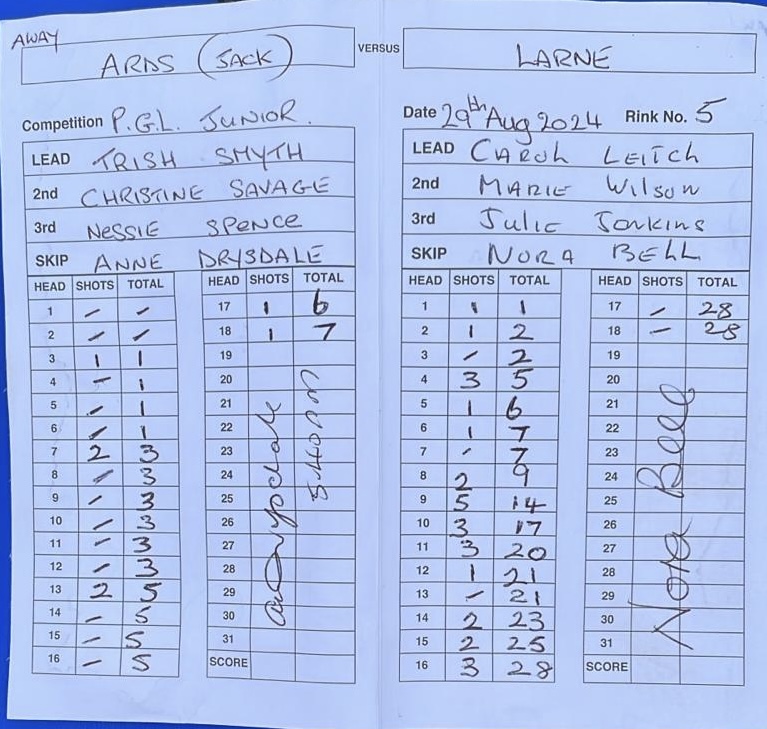 AWAY
ARDS (JACK) VERSUS LARNE
Competition P.G.L. JUNIOR.
Date 29th Aug 2024 Rink No. 5
LEAD TRISH SMYTH
2nd CHRISTINE SAVAGE
3rd NESSIE SPENCE
SKIP ANNE DRYSDALE
LEAD CAROL LEITCH
2nd MARIE WILSON
3rd Julie Jenkins
SKIP NORA BELL
HEAD SHOTS TOTAL
1 - -
2 - -
3 1 1
4 - 1
5 - 1
6 - 1
7 2 3
8 - 3
9 - 3
10 - 3
11 - 3
12 - 3
13 2 5
14 - 5
15 - 5
16 - 5
HEAD SHOTS TOTAL
17 1 6
18 1 7
19
20
21
22
23
24
25
26
27
28
29
30
31
SCORE
HEAD SHOTS TOTAL
1 1 1
2 1 2
3 - 2
4 3 5
5 1 6
6 1 7
7 - 7
8 2 9
9 5 14
10 3 17
11 3 20
12 1 21
13 - 21
14 2 23
15 2 25
16 3 28
HEAD SHOTS TOTAL
17 - 28
18 - 28
19
20
21
22
23
24
25
26
27
28
29
30
31
SCORE
Nora Bell